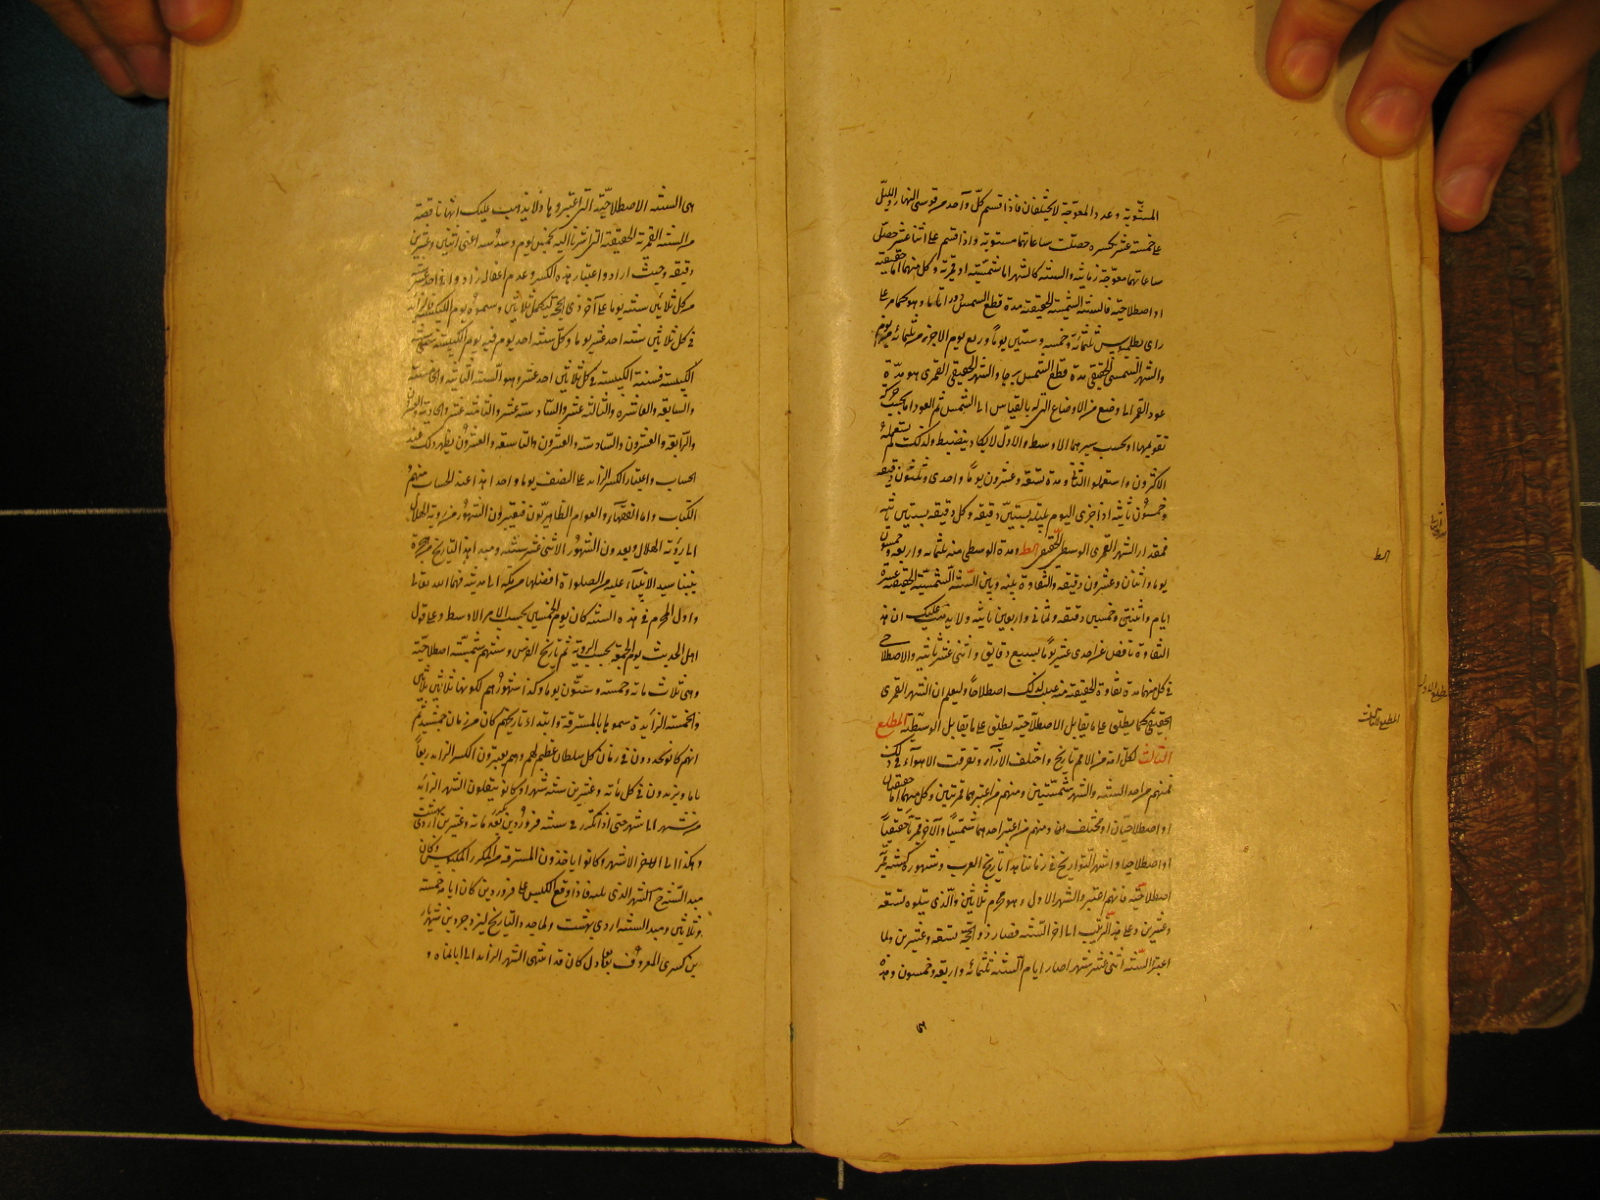 المستوية وعدد المعوجة لا يختلفان فاذا قسم كل واحد من قوسى النهار والليل
على خمسة عشر بكسره حصلت ساعاتها مستوية واذا قسم على اثنا عشر حصل
ساعاتها معوجة زمانية والسنة كالشهر اما شمسية او قمرية وكل منهما اما حقيقية
او اصطلاحية فالسنة الشمسية الحقيقية مدة قطع الشمس دورا تاما وهو كما مر على
راى بطلميوس ثلثمائة وخمسة وستين يوما وربع يوم الا جزء من ثلثمائة من يوم
والشهر الشمسى الحقيقى مدة قطع الشمس برجا والشهر الحقيقى القمرى هو مدة
عود القمر الى وضع من الاوضاع التى له بالقياس الى الشمس ثم العود اما بحسب حركة
تقويمهما او بحسب سيرهما الاوسط والاول لا يكاد ينضبط ولذلك لم يستعمله
الاكثرون واستعملوا الثانى ومدة تسعة وعشرون يوما واحدى وثلثون دقيقة
وخمسون ثانية اذ اجزى اليوم بليلته بستين دقيقة وكل دقيقة بستين ثانية
فمقدار الشهر القمرى الوسطى الحقيقى الط ومدة الوسطى منه ثلثمائة واربعة وخمسون
يوما واثنان وعشرون دقيقة والتفاوة بينه وبين السنة الشمسية الحقيقية عشرة
ايام واثنين وخمسين دقيقة وثمانى واربعين ثانية ولا يذهب عليك ان هذ
التفاوة ناقص عن احدى عشر يوما بسبع دقايق واثنى عشر ثانية والاصطلاحى
فى كل منهما مدة تفاوة الحقيقية منه عبد لذلك اصطلاحا وليعلم ان الشهر القمرى
الحقيقى كما يطلق على ما يقابل الاصطلاحية يطلق على ما يقابل الوسطية المطلع
الثالث لكل امة من الامم تاريخ واختلف الازآر وتفرقت الاهوآء فى ذلك
فمنهم من احد السنة والشهر شمسيتين ومنهم من اعتبرهما قمريتين وكل منهما اما حقيقيان
او اصطلاحيان او مختلفان ومنهم من اعتبر احدهما شمسيا والآخر قمريا حقيقيا
او اصطلاحيا واشهر التواريخ فى زماننا هذا تاريخ العرب وشهوره كسنته قمر
اصطلاحية فانهم اعتبروا الشهر الاول وهو محرم ثلاثين والذى يتلوه تسعة
وعشرين وعلى هذا الترتيب الى اخر السنة فصار ذو الحجة تسعة وعشرين ولما
اعتبر السنة اثنى عشر شهرا صار ايام السنة ثلثمائة واربعة وخمسون وهذه
هى
الط
المطلع الثالث
هى السنة الاصطلاحية التى اعتبروها ولا يذهب عليك انها ناقصة
من السنة القمرية الحقيقية التى اشرنا اليه بخمس يوم وسدسه اعنى اثنين وعشرين
دقيقة وحيث ارادوا اعتبار هذه الكسر وعدم اغفاله زادوا فى احد عشر
من كل ثلاثين سنة يوما على آخر ذى الحجة ليكمل ثلاثين وسموه يوم الكبيسة فالزائد
فى كل ثلاثين سنة احد عشر يوما وكل سنة احد يوم فيه يوم الكبيسة سمى سنة
الكبيسة فسنة الكبيسة فى كل ثلاثين احد عشر وهو السنة الثانية والخامسة
والسابعة والعاشرة والثالثة عشر والسادسة عشر والثامنة عشر والحادية والعشرون
والرابعة والعشرون والسادسة والعشرون والتاسعة والعشرون يظهر ذلك عند
الحساب واعتبار الكسر الزائد على النصف يوما واحدا هذا عند الحساب منهم
الكتاب واما الفقهآء والعوام الظاهريون فيعتبرون الشهور من روية الهلال
الى رؤية الهلال ويعدون الشهور الاثنى عشر سنة ومبدا هذا التاريخ من هجرة
نبينا سيد الانبياء عليه من الصلواة افضلها من مكة الى مدينة فهما الله تعالى
واول المحرم فى هذه السنة كان يوم الخميس بحسب الامر الاوسط وعلى قول
اهل الحديث يوم الجمعة بحسب الروية ثم تاريخ الفرس وسنتهم شمسية اصطلاحية
وهى ثلاث مائة وخمسة وستون يوما وكذا شهورهم لكونها ثلاثين ثلاثين
والخمسة الزآئدة سموها بالمسترقة وابتداء تاريخهم كان من زمان جمشيد ثم
انهم كانوا يجددون فى زمان كل سلطان عظيم لهم وهم يعتبرون الكسر الزائد ربعا
تاما ويزيدون فى كل مائة وعشرين سنة شهرا وكانوا ينقلون الشهر الزائد
من شهر الى شهر حتى اذا تكرر فى سنة فروردين تكرر بعد مائة وعشرين اردى بهشت
وهكذا الى اخر الاشهر وكانوا ياخذون المسترقة من المكرر المكبوس وكان
مبدء السنة ح الشهر الذى يليه فاذا وقع الكبيس على فروردين كان ايامه خمسة
وثلاثين ومبدء السنة اردى بهشت ولما جدد التاريخ ليزدجرد بن شهريار
بن كسرى المعروف بعادل كان قد انتهى الشهر الزائد الى ابان ماه و